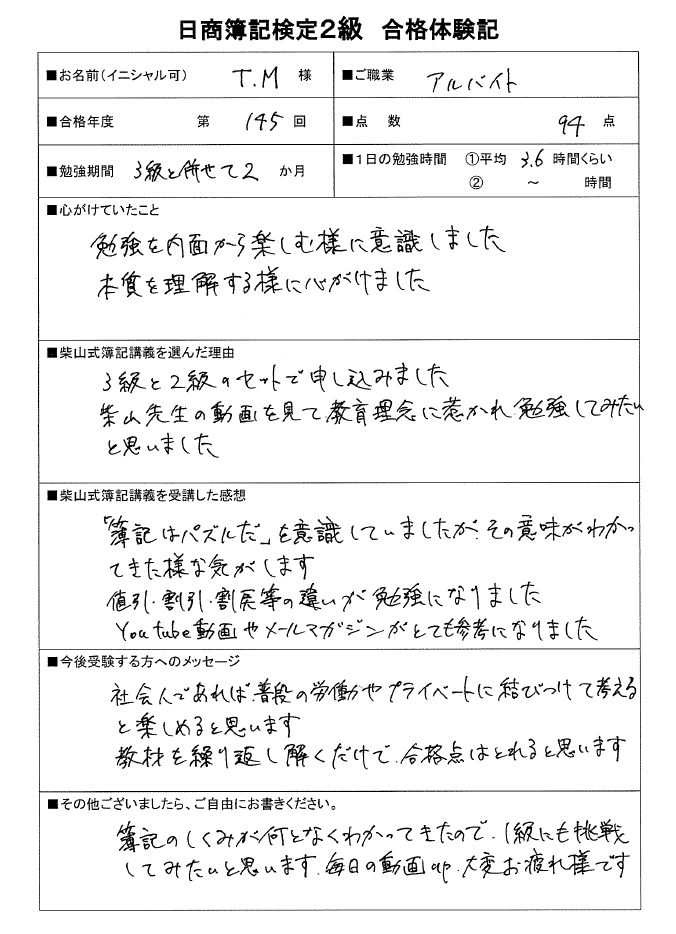 日商簿記検定2級 合格体験記
■お名前(イニシャル可) T.M 様 ■ご職業 アルバイト
■合格年度 第 145 回 ■点 数 94 点
■勉強期間 3級と併せて2 か月 ■1日の勉強時間 ①平均 3.6 時間くらい
② ～ 時間
■心がけていたこと
勉強を内面から楽しむ様に意識しました
本質を理解する様に心がけました
■柴山式簿記講義を選んだ理由
3級と2級のセットで申し込みました
柴山先生の動画を見て、教育理念に惹かれ、勉強してみたい
と思いました
■柴山式簿記講義を受講した感想
「簿記はパズルだ」を意識していましたが、その意味がわかっ
てきた様な気がします
値引・割引・割戻等の違いが勉強になりました
Youtube動画やメールマガジンがとても参考になりました
■今後受験する方へのメッセージ
社会人であれば、普段の労働やプライベートに結びつけて考える
と楽しめると思います
教材を繰り返し解くだけで、合格点はとれると思います
■その他ございましたら、ご自由にお書きください。
簿記のしくみが何となくわかってきたので、1級にも挑戦
してみたいと思います、毎日の動画up、大変お疲れ様です